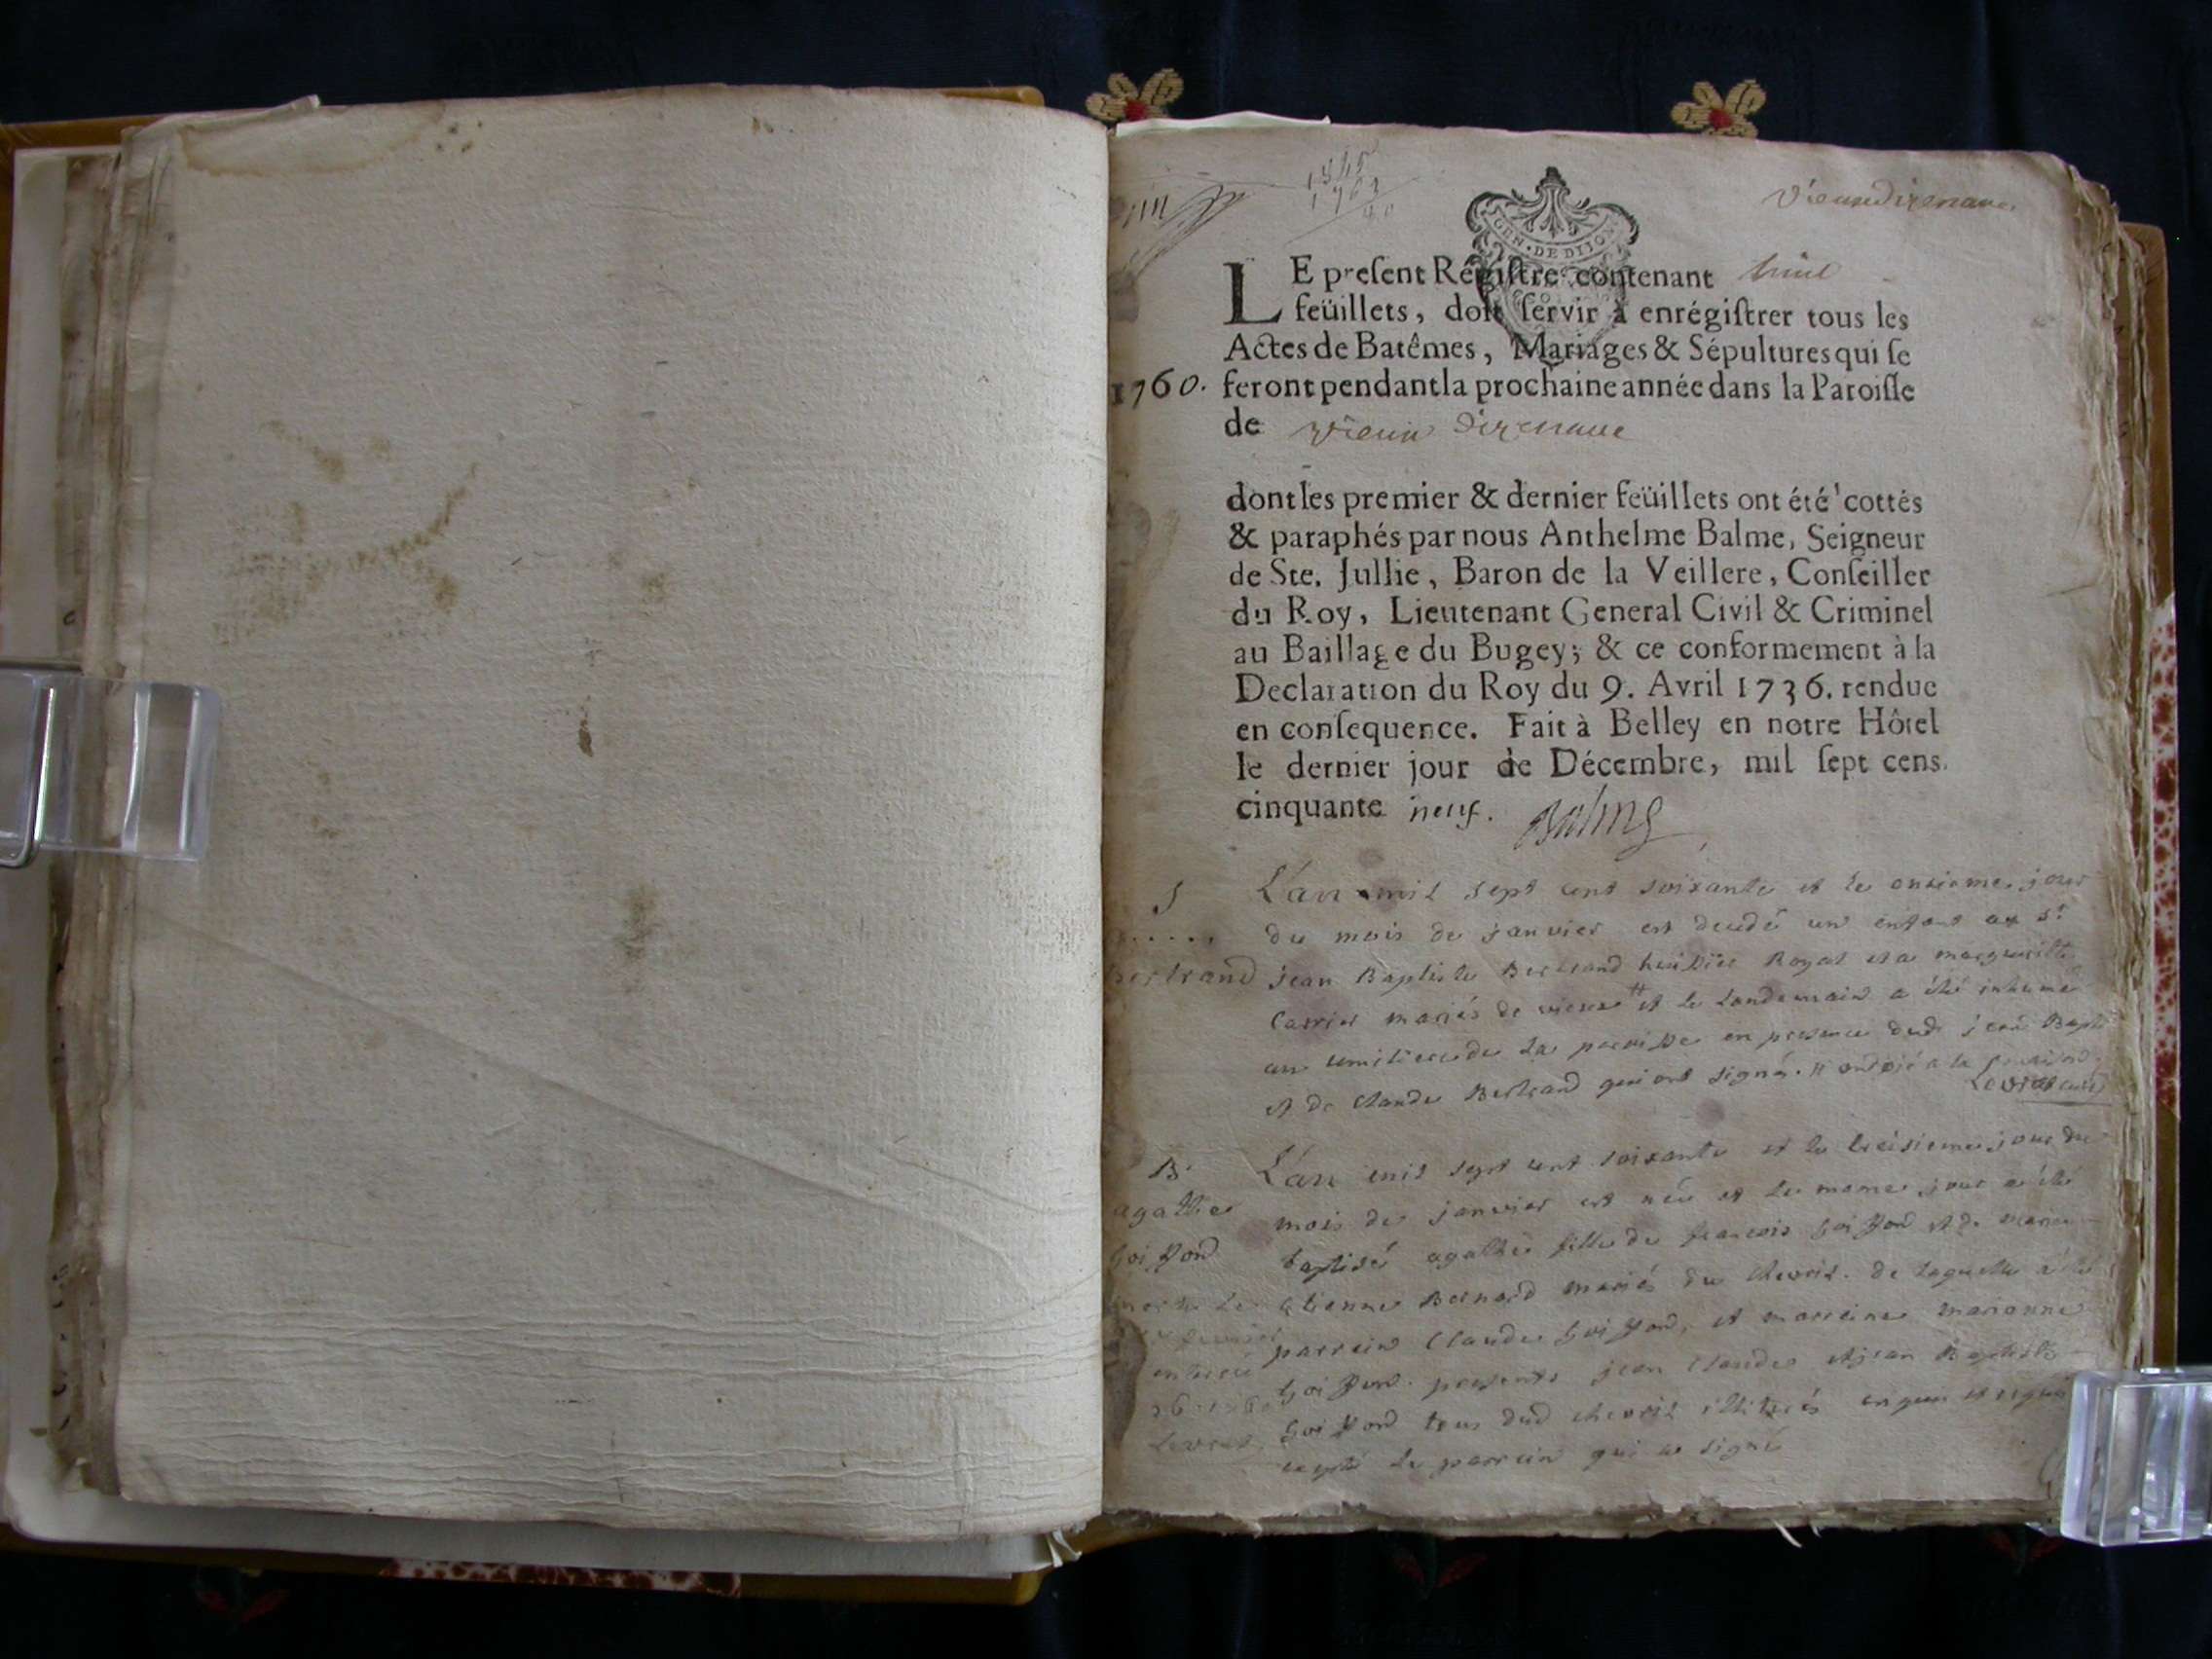 1845
Vieuxdizenave
GEN · DE DIJON
LE preſent Régiſtre contenant huit
feüillets, doit ſervir à enrégiſtrer tous les
Actes de Batêmes, Mariages & Sépultures qui ſe
1760. feront pendant la prochaine année dans la Paroiſſe
de vieux dizenave
dont les premier & dernier feüillets ont été cottés
& paraphés par nous Anthelme Balme, Seigneur
de Ste. Jullie, Baron de la Veillere, Conſeiller
du Roy, Lieutenant General Civil & Criminel
au Baillage du Bugey; & ce conformement à la
Declaration du Roy du 9. Avril 1736. rendue
en conſequence. Fait à Belley en notre Hôtel
le dernier jour de Décembre, mil ſept cens
cinquante neuf. Balme
S L'an mil sept cent soixante et le onzieme jour
du mois de janvier est decedé un enfant au Sr
Bertrand jean Baptiste Bertrand huissier Royal et a marguerite
Carrier mariés de vieux # et le landemain a été inhumé
au cimitiere de la paroisse en presence dud jean Bapt
et de Claude Bertrand qui ont signés. # ondoié a la
B. L'an mil sept cent soixante et le treisieme jour du
agathe mois de janvier est née et le meme jour a été
Goiffond baptisée agathe fille de francois Goiffond et de
etienne Bernard mariés du Chevril. de laquelle a été
parrein Claude Goiffond, et marreine marianne
Goiffond. presents jean Claude et jean Baptiste
Goiffond tous dud chevril illiterés enquis et requis
excepté le parrein qui a signé